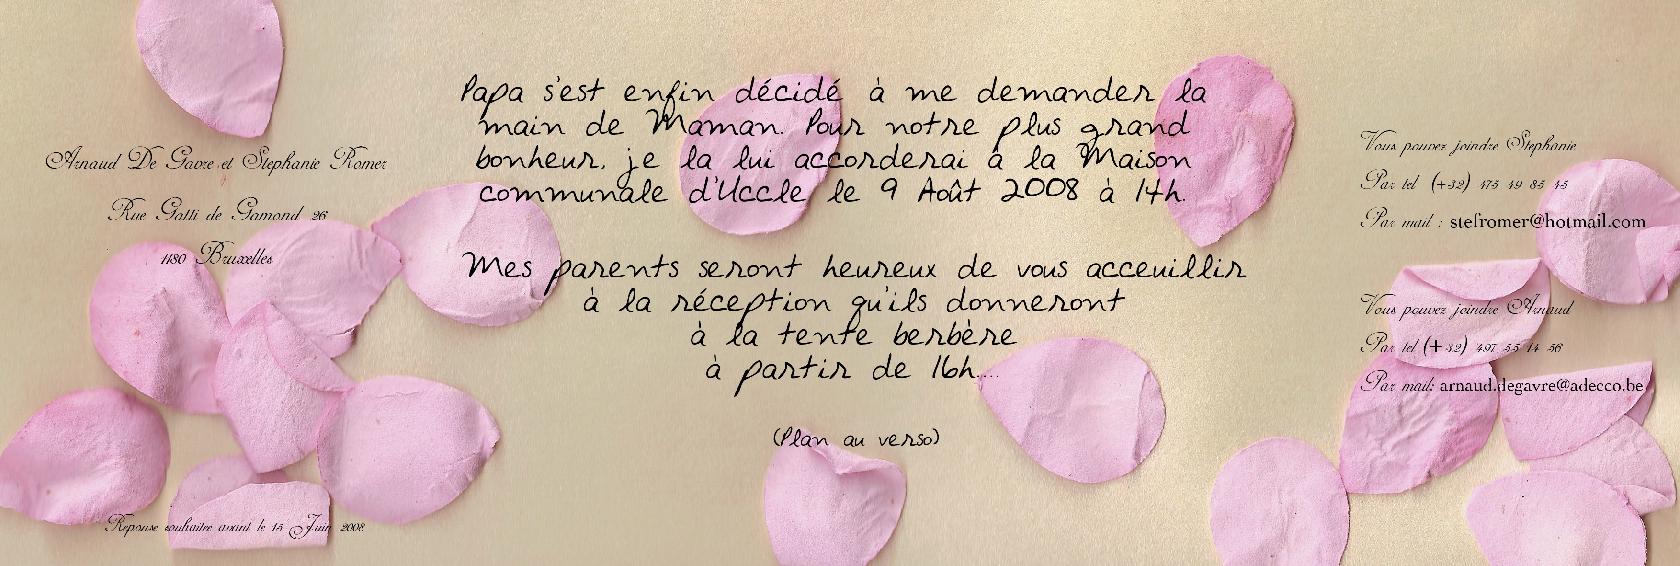 Arnaud De Gavre et Stephanie Romer
Rue Gatti de Gamond 26
1180 Bruxelles
Reponse souhaitee avant le 15 Juin 2008
Papa s'est enfin décidé à me demander la
main de Maman. Pour notre plus grand
bonheur, je la lui accorderai à la Maison
communale d'Uccle le 9 Août 2008 à 14h.
Mes parents seront heureux de vous acceuillir
à la réception qu'ils donneront
à la tente berbère
à partir de 16h....
(Plan au verso)
Vous pouvez joindre Stephanie
Par tel (+32) 475 49 85 45
Par mail : stefromer@hotmail.com
Vous pouvez joindre Arnaud
Par tel (+32) 497 55 14 56
Par mail: arnaud.degavre@adecco.be